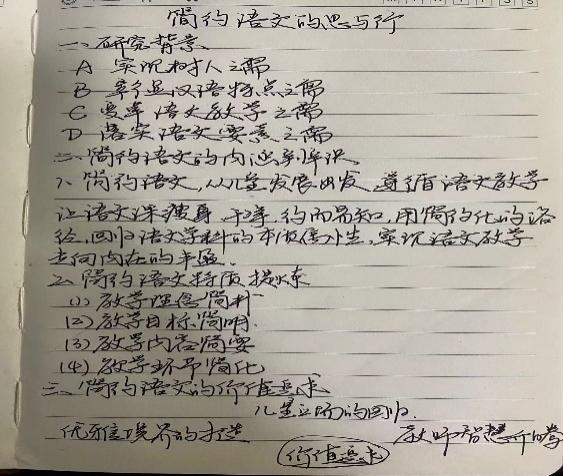 简约语文的思与行
一、研究背景
A 实现树人之需
B 彰显汉语特点之需
C 变革语文教学之需
D 落实语文要素之需
二、简约语文的内涵到解识
1、简约语文，从儿童发展出发，遵循语文教学
让语文课瘦身、干净，约而易知，用简约化的路
径，回归语文学科的本质，实现语文教学
走向内在的丰盈.
2、简约语文特质提炼
(1) 教学理念简朴
(2) 教学目标简明.
(3) 教学内容简要
(4) 教学环节简化
三、简约语文的价值追求
儿童立场的回归.
优雅境界的打造
教师智慧
价值追求